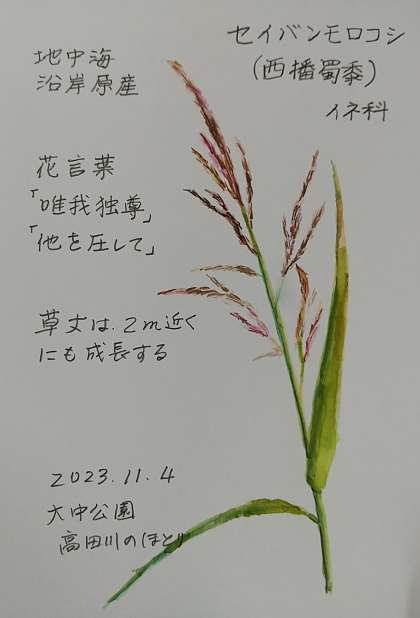 セイバンモロコシ
(西播蜀黍)
イネ科
地中海
沿岸原産
花言葉
「唯我独尊」
「他を圧して」
草丈は、2m近く
にも成長する
2023.11.4
大中公園
高田川のほとり